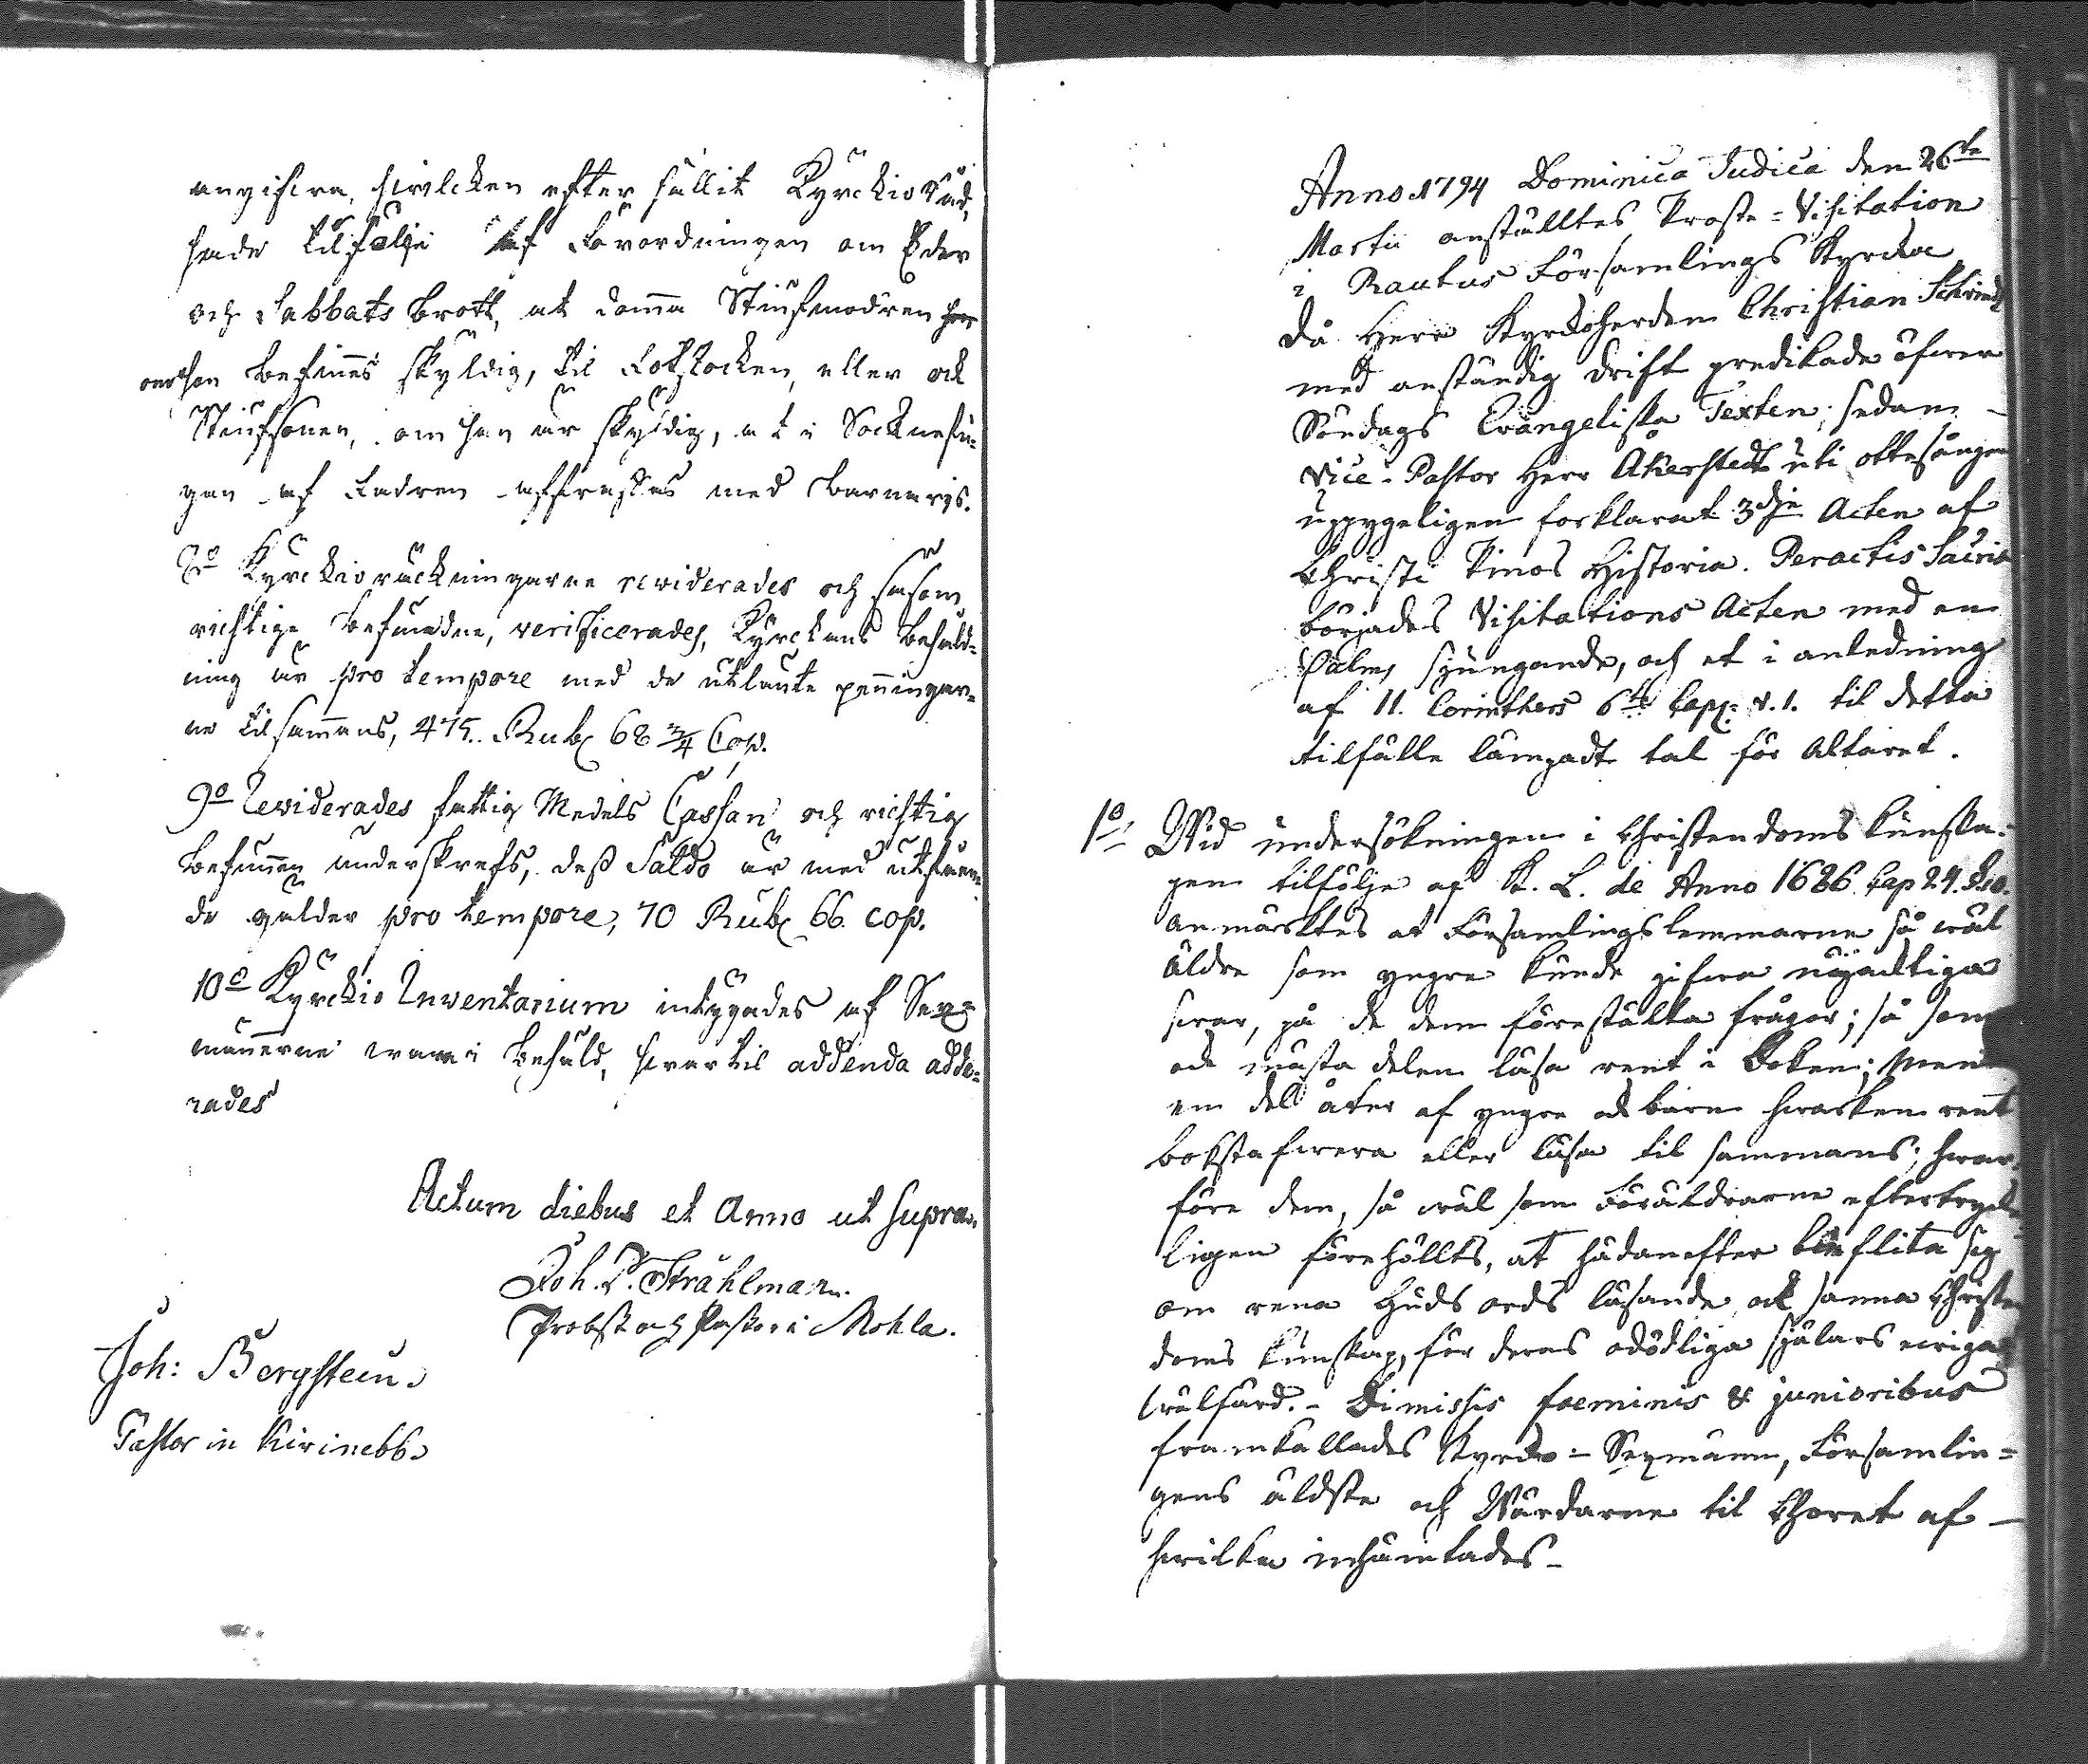 angifwa, hwilcken efter hållit Kyrckio Råd,
hade tilfölje af Förordningen om Eder
och Sabbats brott, at döma Stiufmodren
om hon befinnes skyldig, til Fotstocken, eller ock
Stiufsonen, om han är skyldig, at i Socknestu-
gan af Fadren afstraffas med barnaris.
8o Kyrckioräckningarne reviderades och såsom
richtige befundne, verificerades, Kyrckans behåld-
ning är pro tempore med de utlånte penningar-
ne tilsammans, 475. Rub. 68 3/4 Cop.
9o Reviderades fattig Medels Cassan och richtig
befunnen underskrefs, dess Saldo är med utstående
de gälder pro tempore, 70 Rub. 66. cop.
10o Kyrckio Inventarium intygades af Sex-
männerne wara i behåld, hwartil addenda adde-
rades
Actum diebus et Anno ut supra.
Joh. P. Stråhlman.
Probst och Pastor i Mohla.
Joh: Bergsteen.
Pastor in Kivinebb.
Anno 1794 Dominica Judica den 26te
Martii anstälttes Proste-Visitation
i Rautus Församlings Kyrcka
då Herr Kyrckoherden Christian
med anständig drift predikade öfwer
Söndags Evangeliska Texten; sedan
Vice-Pastor Herr Åkerstedt uti ottesången
uppbygeligen förklarat 3dje Acten af
Christi Pinos Historia. Peractis Sacris
börjades Visitations Acten med en
Psalms sjungande, och et i anledning
af II. Corinthers 6te Cap: v.1. til detta
tilfälle lämpadt tal för Altaret.
1o Wid undersökningen i Christendoms kunska-
pen tilfölje af K. L. de Anno 1686. Cap 24.
anmärcktes at Församlingslemmarne så wäl
äldre som yngre kunde gifwa nöjacktiga
swar, på de dem förestälta frågor; så som
ock mästa delen läsa rent i Boken; Men
en del åter af yngre och barn hwarken rent
bokstafwera eller läsa til sammans; hwar-
före dem, så wäl som Föräldrarne eftertryck-
ligen förehöllts, at hädanefter beflita sig
om rena Guds ords läsande ock sanna Christen
doms kunskap, för deras odödliga själars ewiga
wälfärd. - Dimissis foeminis & junioribus
framkallades Kyrcko-Sexmänn, Församlin-
gens äldste och Wärdarne til Choret af
hwilka inhämtades